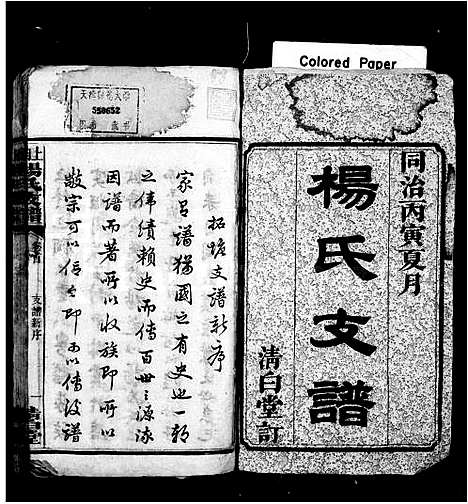 Colored Paper
同治丙寅夏月
楊氏支譜
清白堂訂
550652
拓墈支譜新序
家呂譜猶國之有史也一朝
之偉績賴史而傳百世之源流
因譜而著所以收族即所以
敬宗可以信今即可以傳後譜
楊氏支譜
卷首
支譜新序
清白堂